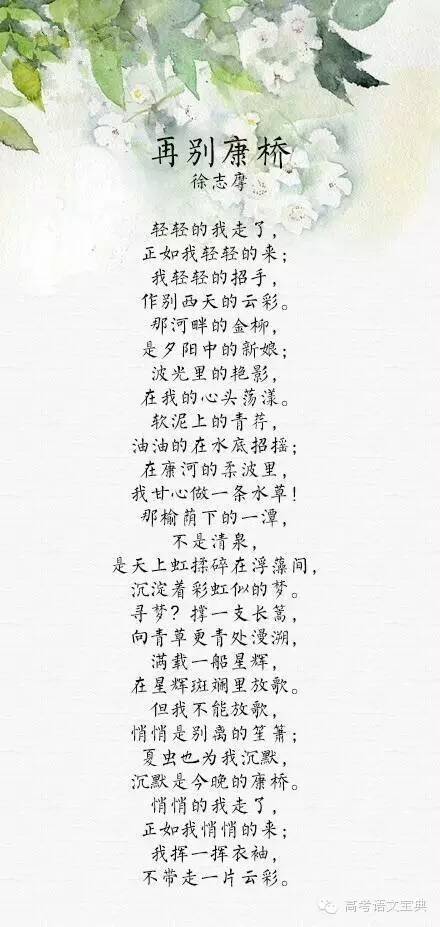 再别康桥
徐志摩
轻轻的我走了，
正如我轻轻的来；
我轻轻的招手，
作别西天的云彩。
那河畔的金柳，
是夕阳中的新娘；
波光里的艳影，
在我的心头荡漾。
软泥上的青荇，
油油的在水底招摇；
在康河的柔波里，
我甘心做一条水草！
那榆荫下的一潭，
不是清泉，
是天上虹揉碎在浮藻间，
沉淀着彩虹似的梦。
寻梦？撑一支长篙，
向青草更青处漫溯，
满载一船星辉，
在星辉斑斓里放歌。
但我不能放歌，
悄悄是别离的笙箫；
夏虫也为我沉默，
沉默是今晚的康桥。
悄悄的我走了，
正如我悄悄的来；
我挥一挥衣袖，
不带走一片云彩。
高考语文宝典